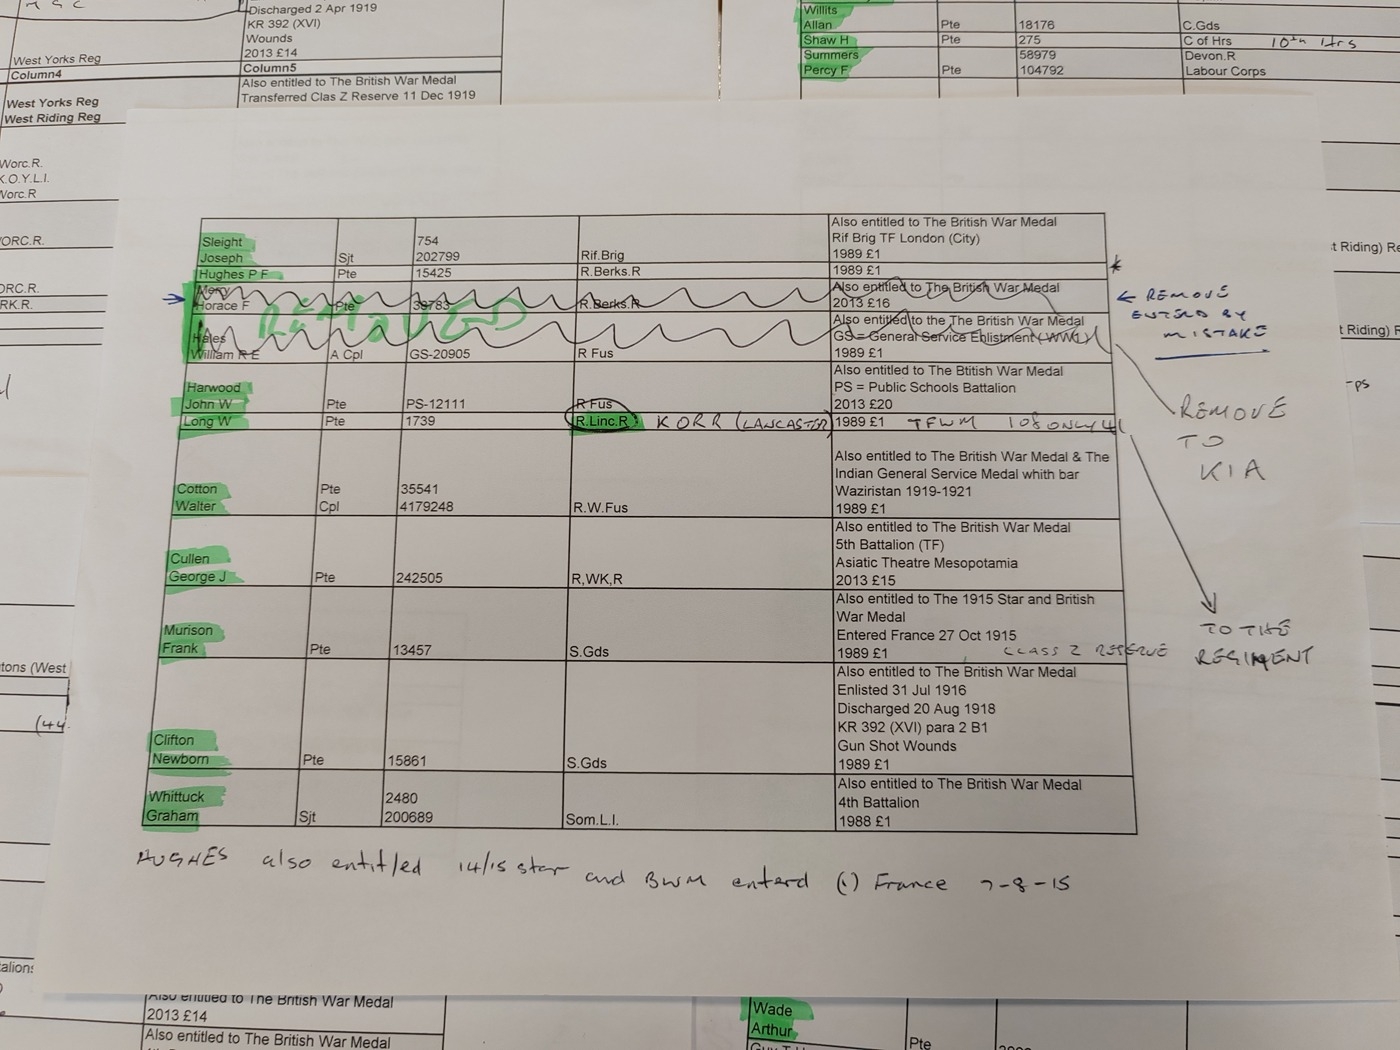 Discharged 2 Apr 1919
KR 392 (XVI)
Wounds
West Yorks Reg 2013 £14
Column4 Column5
Also entitled to The British War Medal
West Yorks Reg Transferred Clas Z Reserve 11 Dec 1919
West Riding Reg
Worc.R.
K.O.Y.L.I.
Worc.R
WORC.R.
Willits
Allan Pte 18176 C.Gds
Shaw H Pte 275 C of Hrs 10th Hrs
Summers 58979 Devon.R
Percy F Pte 104792 Labour Corps
Sleight 754 Also entitled to The British War Medal
Joseph Sjt 202799 Rif.Brig Rif Brig TF London (City)
1989 £1
Hughes P F Pte 15425 R.Berks.R 1989 £1
Merry Also entitled to The British War Medal
Horace F Pte 39783 R.Berks.R 2013 £16
REMOVED
← REMOVE
ENTERD BY
MISTAKE
Hales Also entitled to the British War Medal
GS = General Service Enlistment (WW1)
William R E A Cpl GS-20905 R Fus 1989 £1
REMOVE
TO
KIA
Harwood Also entitled to The Btitish War Medal
PS = Public Schools Battalion
John W Pte PS-12111 R Fus 2013 £20
Long W Pte 1739 R.Linc.R KORR (LANCASTER) 1989 £1 TFWM 108 ONLY
TO THE
REGIMENT
Also entitled to The British War Medal & The
Indian General Service Medal whith bar
Cotton Pte 35541 Waziristan 1919-1921
Walter Cpl 4179248 R.W.Fus 1989 £1
Also entitled to The British War Medal
5th Battalion (TF)
Cullen Asiatic Theatre Mesopotamia
George J Pte 242505 R,WK,R 2013 £15
Also entitled to The 1915 Star and British
War Medal
Murison Entered France 27 Oct 1915
Frank Pte 13457 S.Gds 1989 £1 CLASS Z RESERVE
Also entitled to The British War Medal
Enlisted 31 Jul 1916
Discharged 20 Aug 1918
KR 392 (XVI) para 2 B1
Clifton Gun Shot Wounds
Newborn Pte 15861 S.Gds 1989 £1
Also entitled to The British War Medal
Whittuck 2480 4th Battalion
Graham Sjt 200689 Som.L.I. 1988 £1
HUGHES also entitled 14/15 star and BWM enterd (1) France 7-8-15
Also entitled to The British War Medal
2013 £14
Also entitled to The British War Medal
Wade
Arthur
Pte